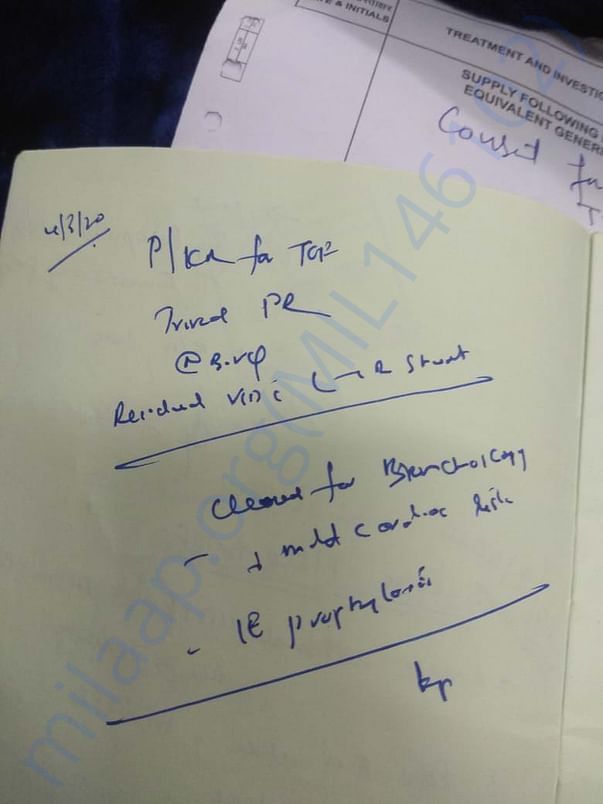 & INITIALS
TREATMENT AND INVESTIG
SUPPLY FOLLOWING
EQUIVALENT GENERI
for
4/3/20
P/ICR for TOF
Trivial PR
Residual VSD c L → R Shunt
Cleared for Bronchoscopy
- mild cardiac risk
- IE prophylaxis
milaap.org(MIL146102)